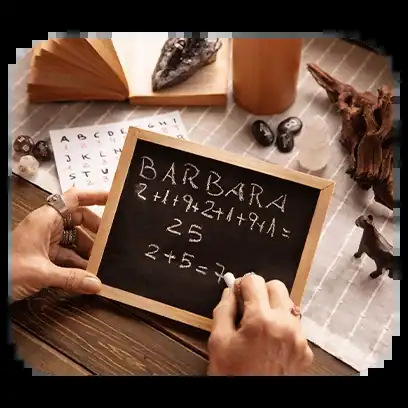 A B C D E G H I
J K L
S T U
BARBARA
2+1+9+2+1+9+1=
25
2+5=7